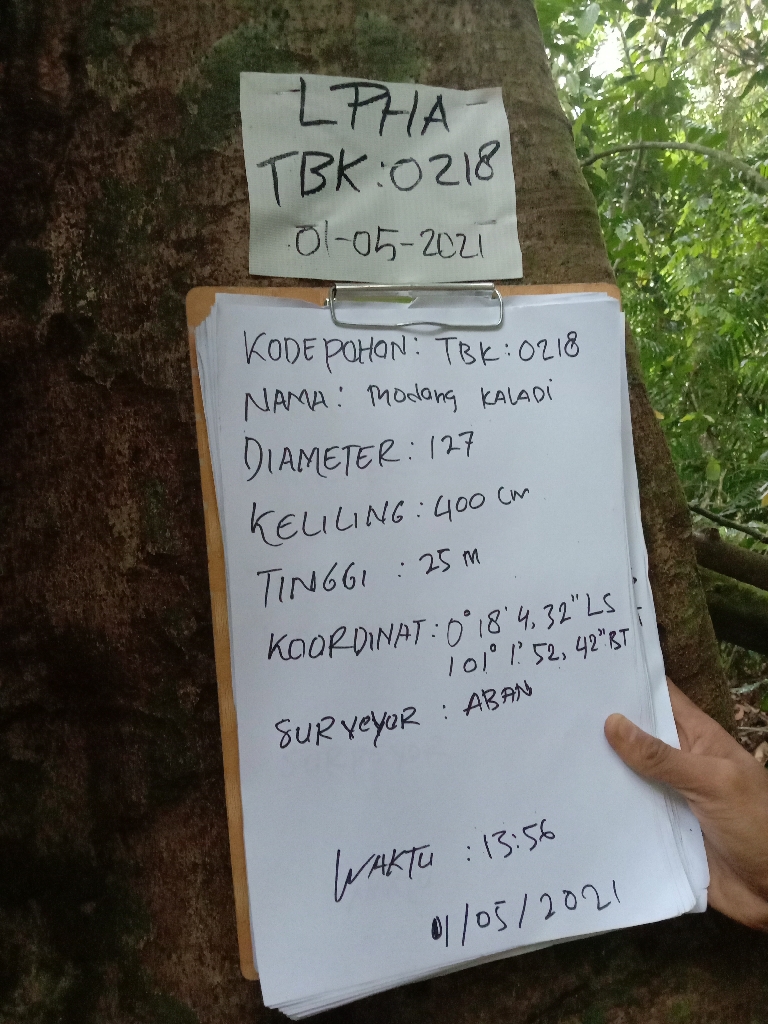 LPHA
TBK:0218
01-05-2021
KODE POHON: TBK:0218
NAMA: Modang KALADI
DIAMETER: 127
KELILING: 400 cm
TINGGI : 25 M
KOORDINAT: 0° 18' 4,32" LS
101° 1' 52,42" BT
SURVEYOR : ABAN
WAKTU : 13:56
01/05/2021